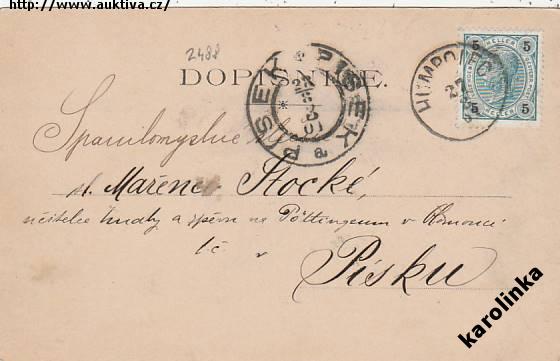 http://www.auktiva.cz/
2488
DOPISNICE.
PÍSEK * PÍSEK a
HUMPOLEC
5 HELLER 5
5 5
Spanilomyslné
sl. Mařence Stocké,
učitelce hudby a zpěvu na Pöttingeum v Olomouci
t.č. v
Písku
karolinka